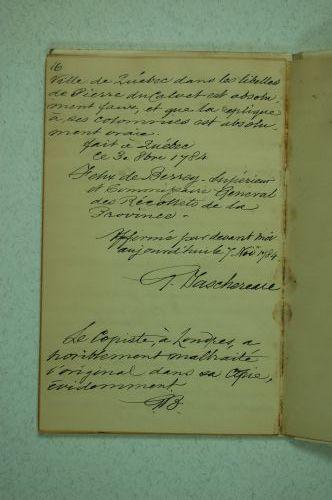 16
Ville de Québec dans les libelles
de Pierre du Calvet est absolu-
ment faux, et que la replique
à ses calomnies est absolu-
ment vraie.
fait à Québec
ce 3e 8bre 1784
Felix de Berey - Supérieur
et Commissaire General
des Récollets de la
Province -
Affirmé par devant moi
aujourd'hui le 7 Nov 1784
T. Taschereau
Le Copiste, à Londres, a
horriblement maltraité
l'original dans sa copie,
évidemment